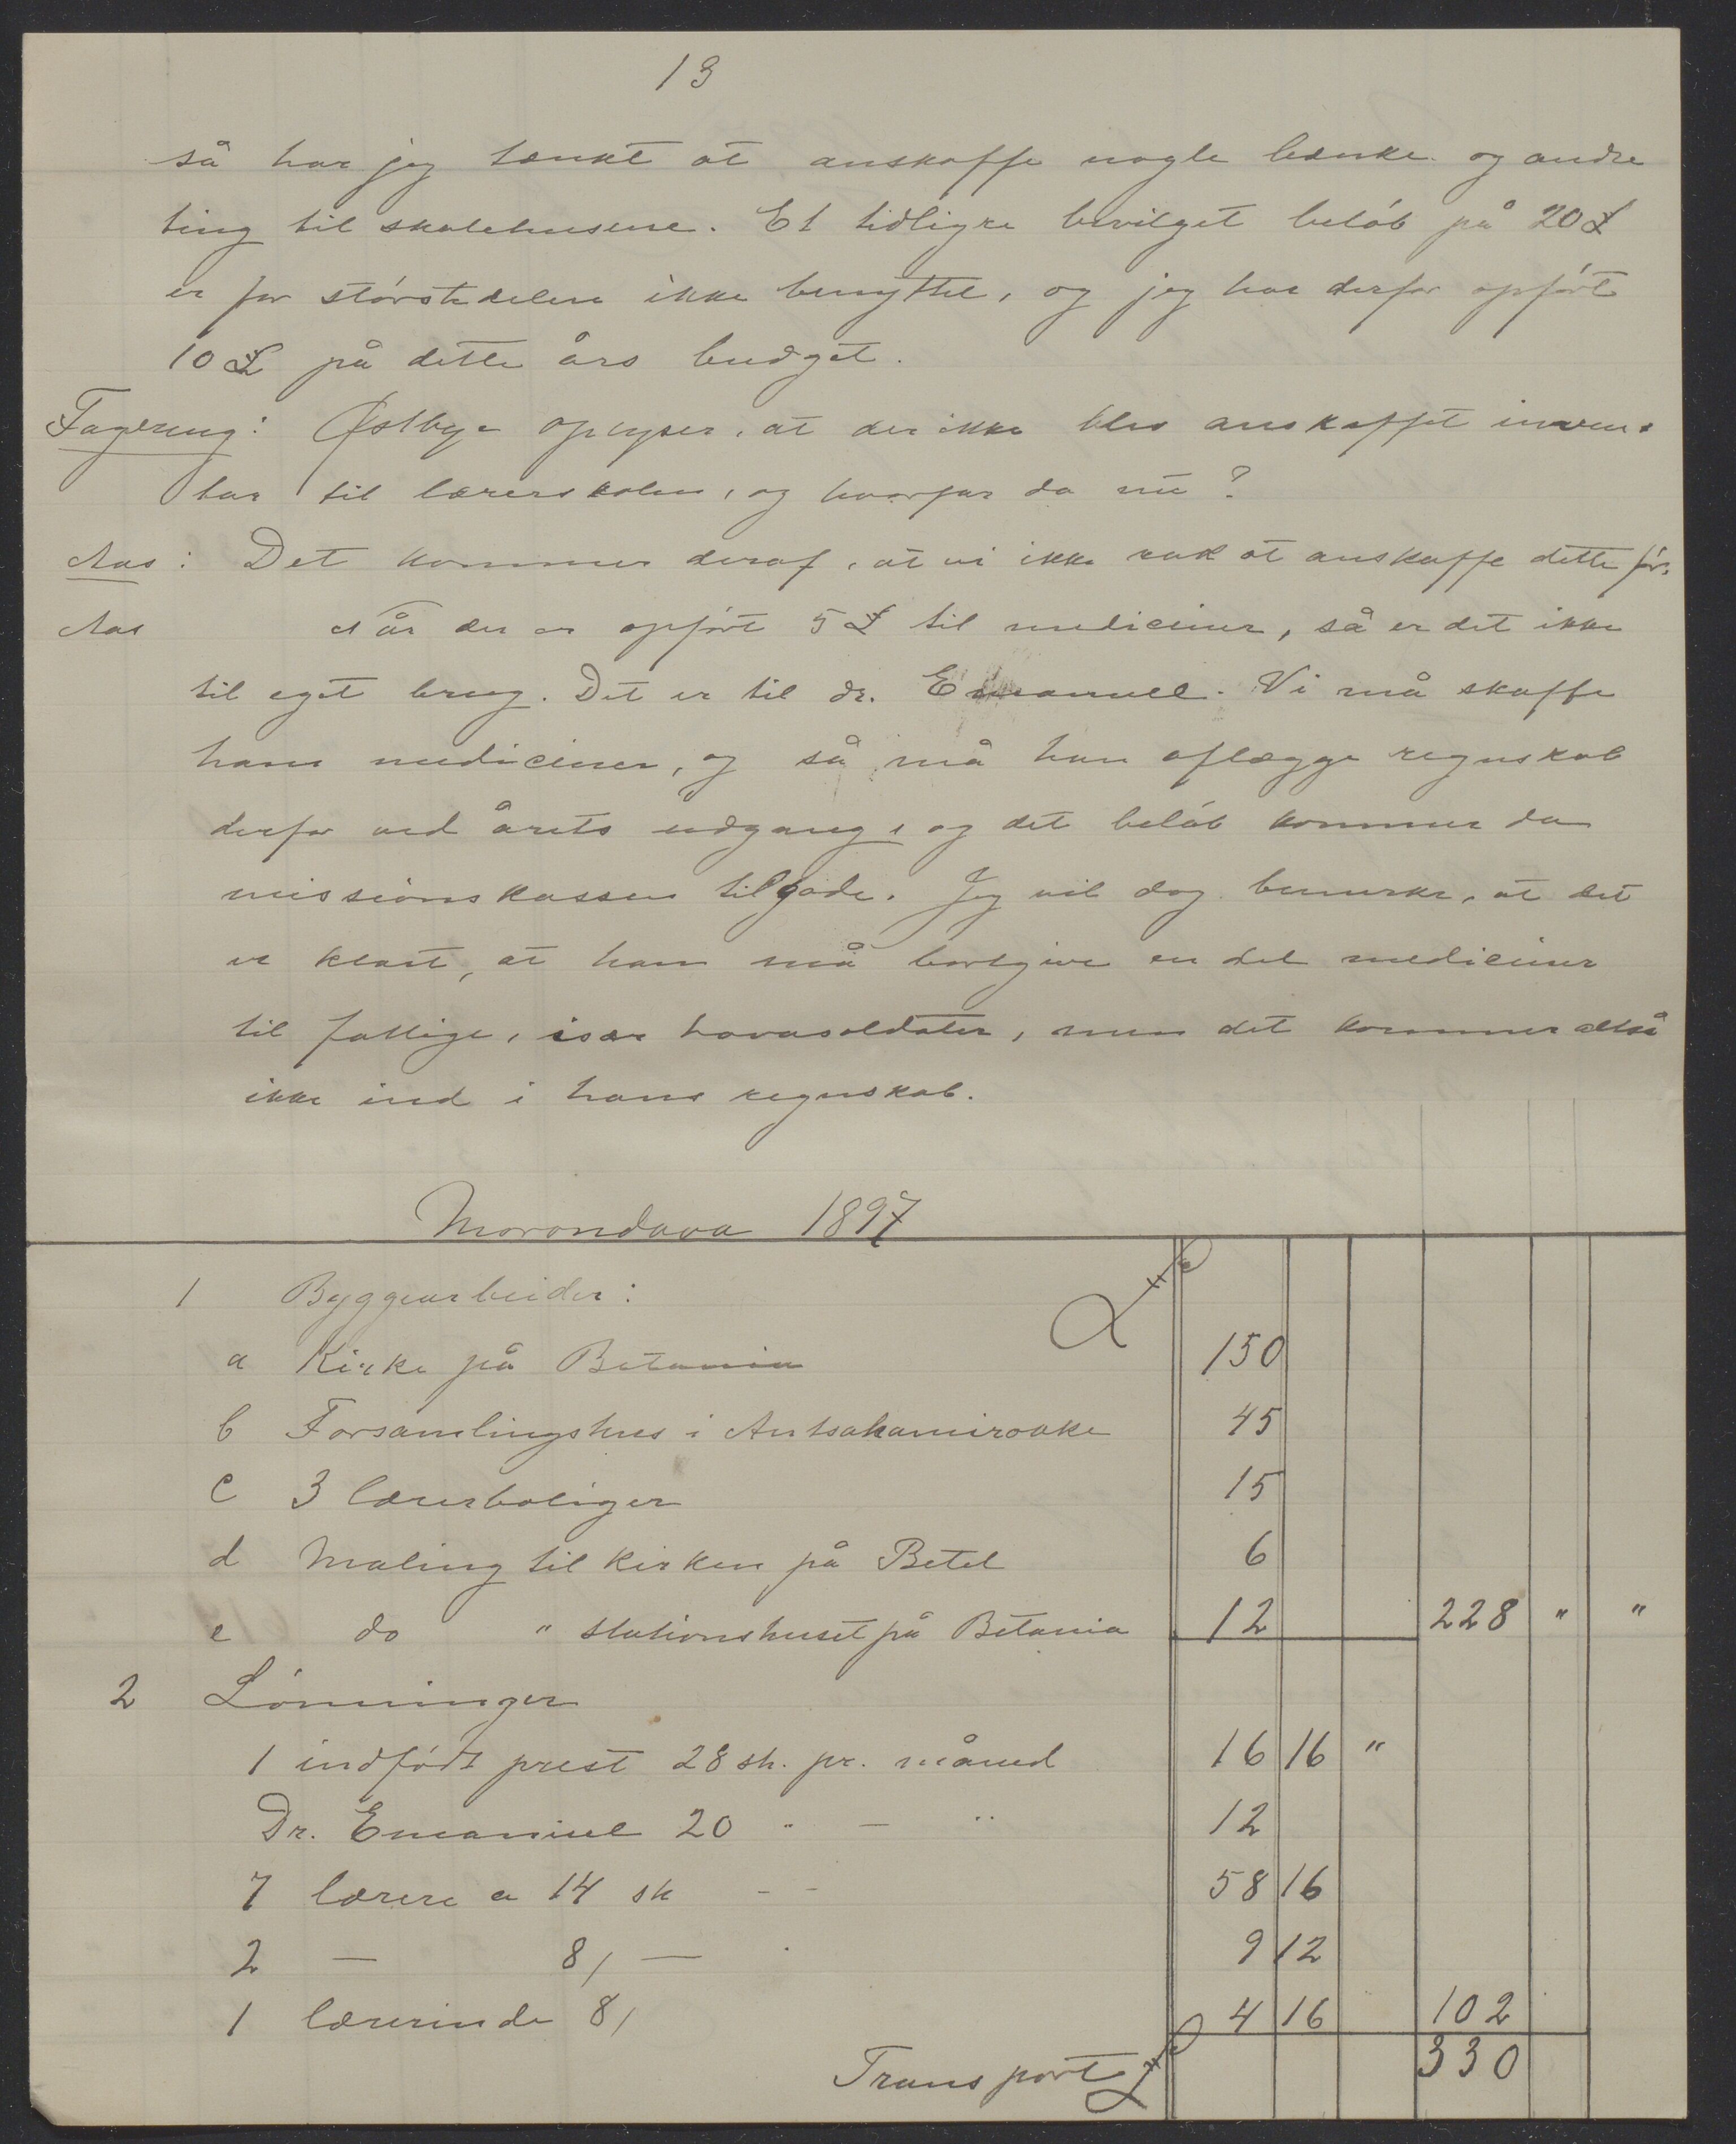 13
så har jeg tænkt at anskaffe nogle bænke og andre
ting til skolehusene. Et tidligre bevilget beløb på 20 £
er for størstedelen ikke benyttet, og jeg har derfor opført
10 £ på dette års budget.
Fagereng: Østbye oplyser, at der ikke blev anskaffet inven-
tar til lærerskolen, og hvorfor da nu?
Aas: Det kommer deraf, at vi ikke rak at anskaffe dette før.
Aas Når der er opført 5 £ til mediciner, så er det ikke
til eget brug. Det er til dr. Emanuel. Vi må skaffe
ham mediciner, og så må han aflægge regnskab
derfor ved årets udgang, og det beløb kommer da
missionskassen tilgode. Jeg vil dog bemerke, at det
er klart, at han må bortgive en del mediciner
til fattige, især hovasoldater, men det kommer altså
ikke ind i hans regnskab.
Morondava 1897
1 Byggearbeider: £
a Kirke på Betania 150
b Forsamlingshus i Antsakamiroaka 45
c 3 lærerboliger 15
d Maling til kirken på Betel 6
e do " stationshuset på Betania 12 228 " "
2 Lønninger
1 indfødt prest 28 sh. pr. måned 16 16 "
Dr. Emanuel 20 " — " 12
7 lærere a 14 sh - - 58 16
2 — 8/ — 9 12
1 lærerinde 8/ 4 16 102
Transport £ 330